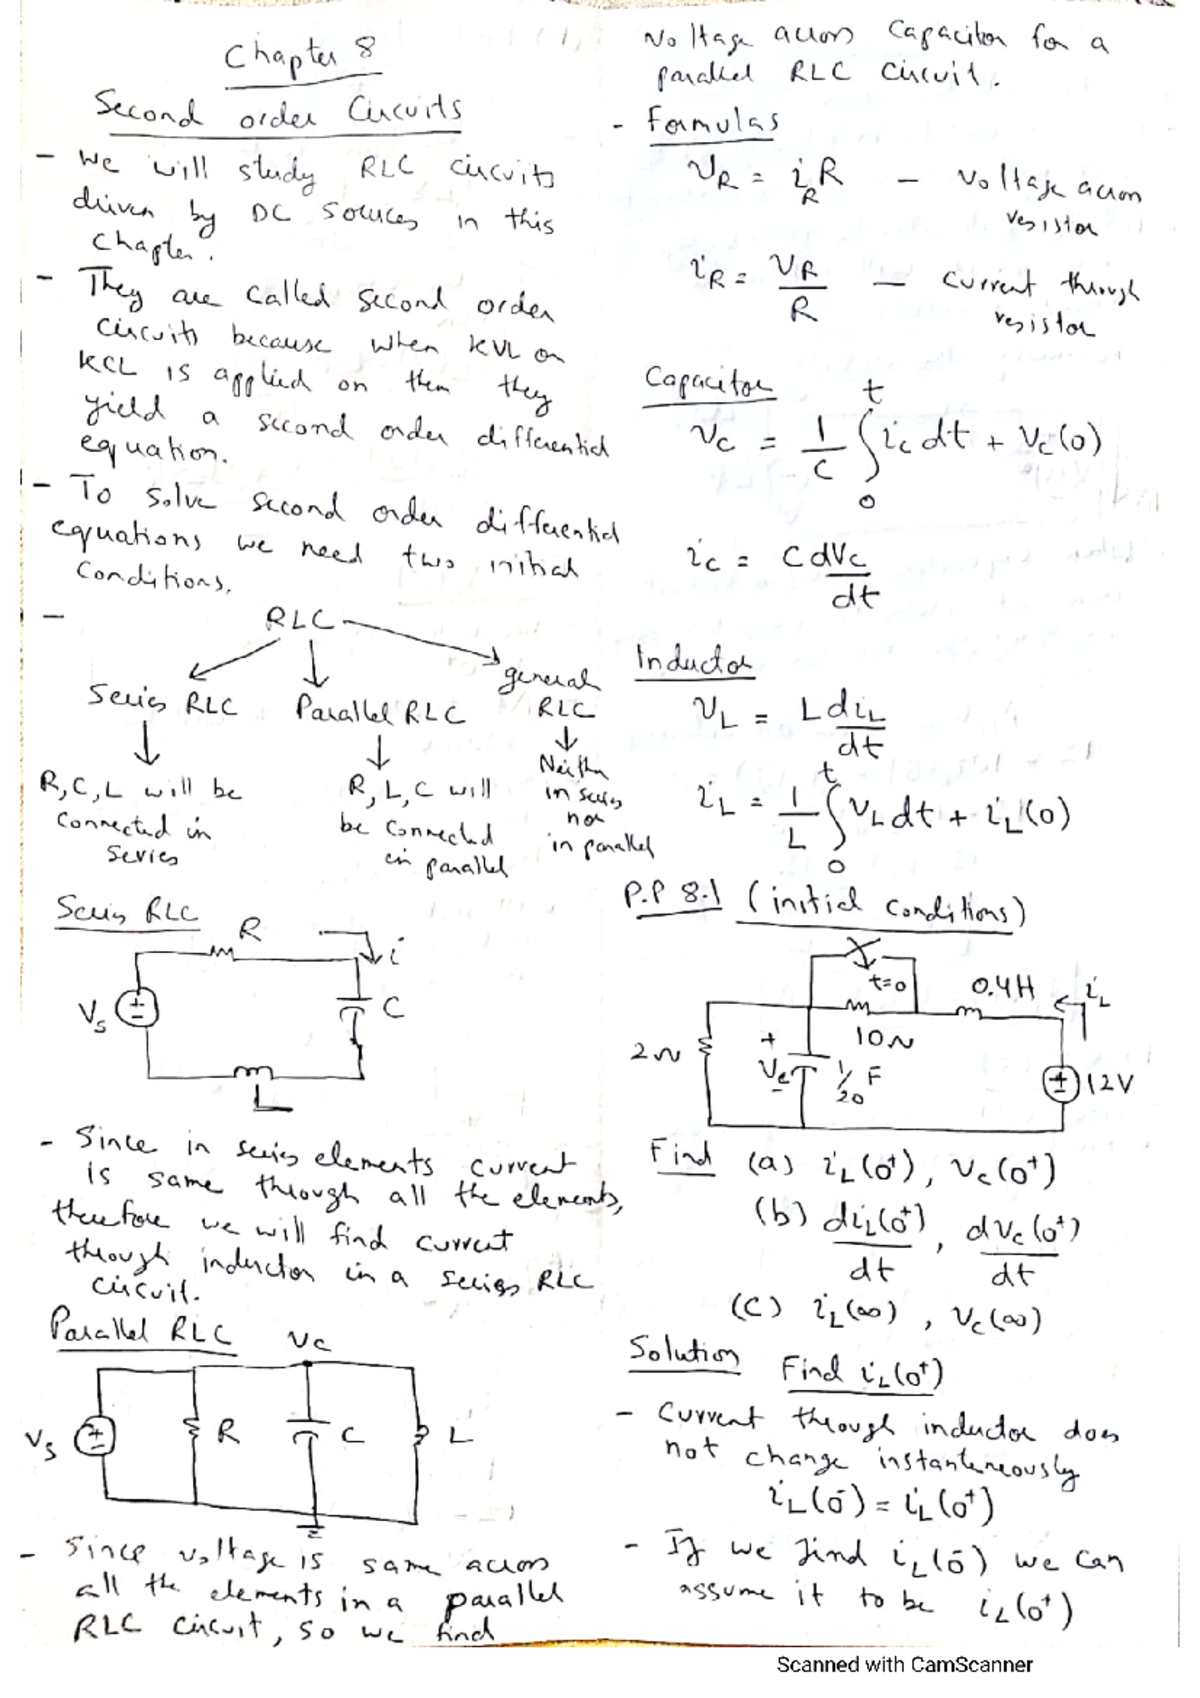 Chapter 8
Second order Circuits
- We will study RLC circuits
driven by DC sources in this
chapter.
- They are called second order
circuits because when KVL or
KCL is applied on them they
yield a second order differential
equation.
- To solve second order differential
equations we need two initial
conditions.
- RLC
Series RLC Parallel RLC general RLC
R, C, L will be
connected in
series
R, L, C will
be connected
in parallel
Neither
in series
nor
in parallel
Series RLC
R i
Vs C
L
- Since in series elements current
is same through all the elements,
therefore we will find current
through inductor in a series RLC
circuit.
Parallel RLC Vc
Vs R C L
- Since voltage is same across
all the elements in a parallel
RLC circuit, so we find
voltage across capacitor for a
parallel RLC circuit.
- Formulas
VR = iR R - voltage across
resistor
iR = VR/R - current through
resistor
Capacitor
vc = 1/C ∫₀ᵗ ic dt + Vc(0)
ic = C dVc/dt
Inductor
VL = L diL/dt
iL = 1/L ∫₀ᵗ VL dt + iL(0)
P.P 8.1 (initial conditions)
t=0 0.4H iL
2Ω + Vc - 10Ω
1/20 F 12V
Find (a) iL(0⁺), Vc(0⁺)
(b) diL(0⁺)/dt, dVc(0⁺)/dt
(c) iL(∞), Vc(∞)
Solution Find iL(0⁺)
- Current through inductor does
not change instanteneously
iL(0⁻) = iL(0⁺)
- If we find iL(0⁻) we can
assume it to be iL(0⁺)
Scanned with CamScanner